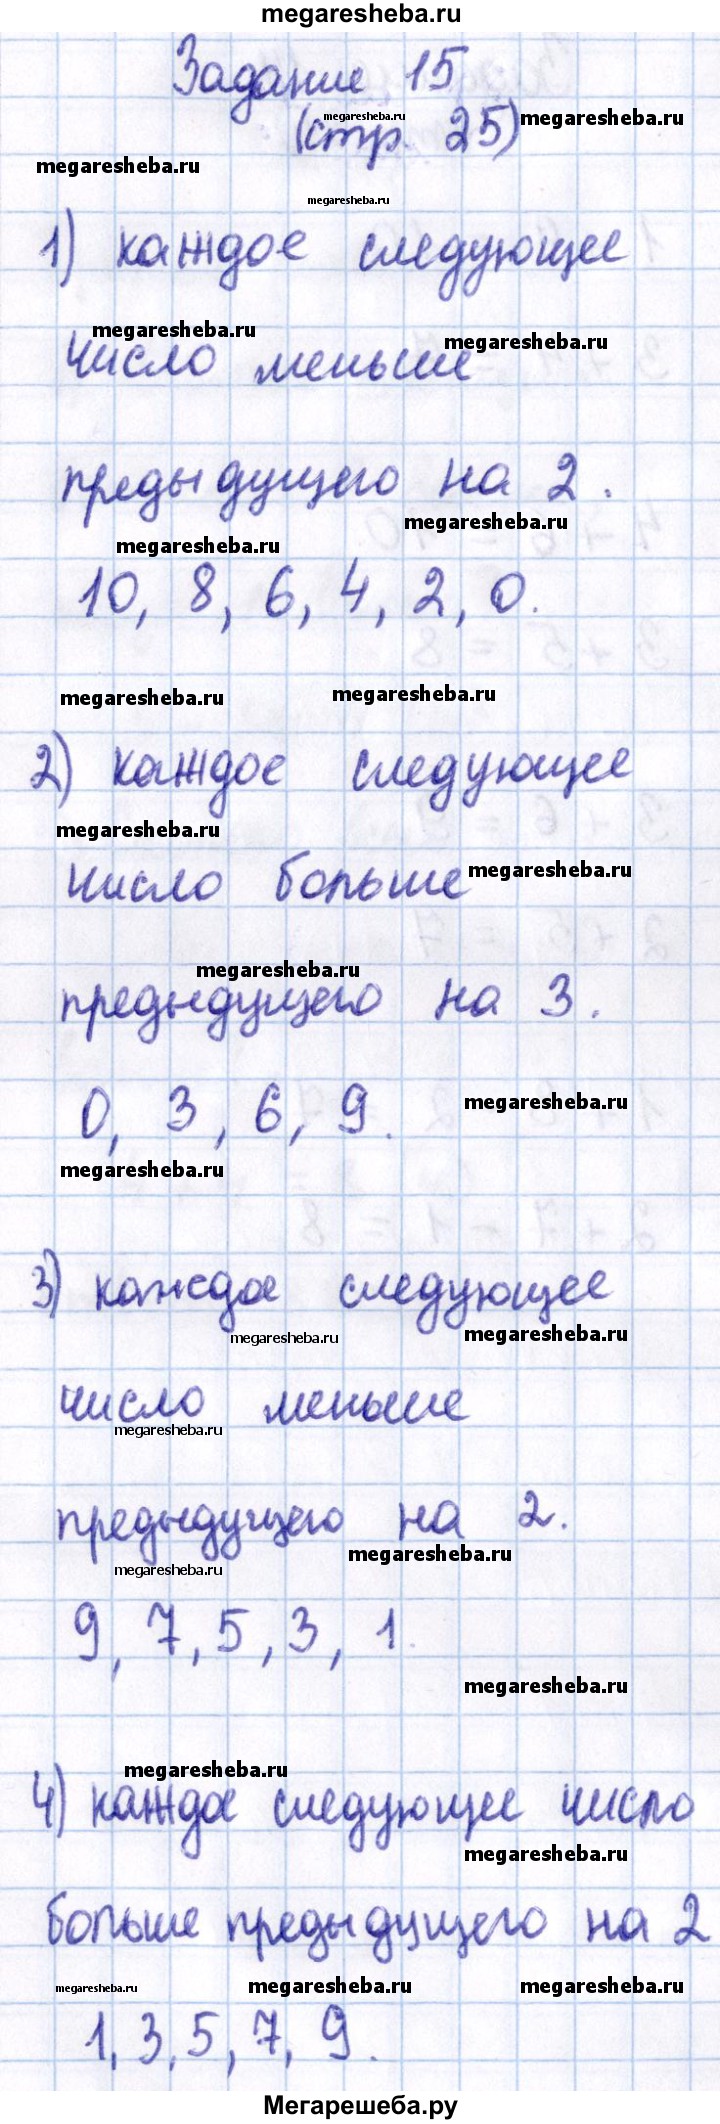 megaresheba.ru
Задание 15
megaresheba.ru
(стр. 25)
megaresheba.ru
megaresheba.ru
megaresheba.ru
1) каждое следующее
megaresheba.ru
megaresheba.ru
число меньше
предыдущего на 2.
megaresheba.ru
megaresheba.ru
10, 8, 6, 4, 2, 0.
megaresheba.ru
megaresheba.ru
2) каждое следующее
megaresheba.ru
число больше
megaresheba.ru
megaresheba.ru
предыдущего на 3.
0, 3, 6, 9.
megaresheba.ru
megaresheba.ru
3) каждое следующее
megaresheba.ru
megaresheba.ru
число меньше
megaresheba.ru
предыдущего на 2.
megaresheba.ru
megaresheba.ru
9, 7, 5, 3, 1.
megaresheba.ru
megaresheba.ru
4) каждое следующее число
megaresheba.ru
больше предыдущего на 2
megaresheba.ru
megaresheba.ru
megaresheba.ru
1, 3, 5, 7, 9.
Мегарешеба.ру